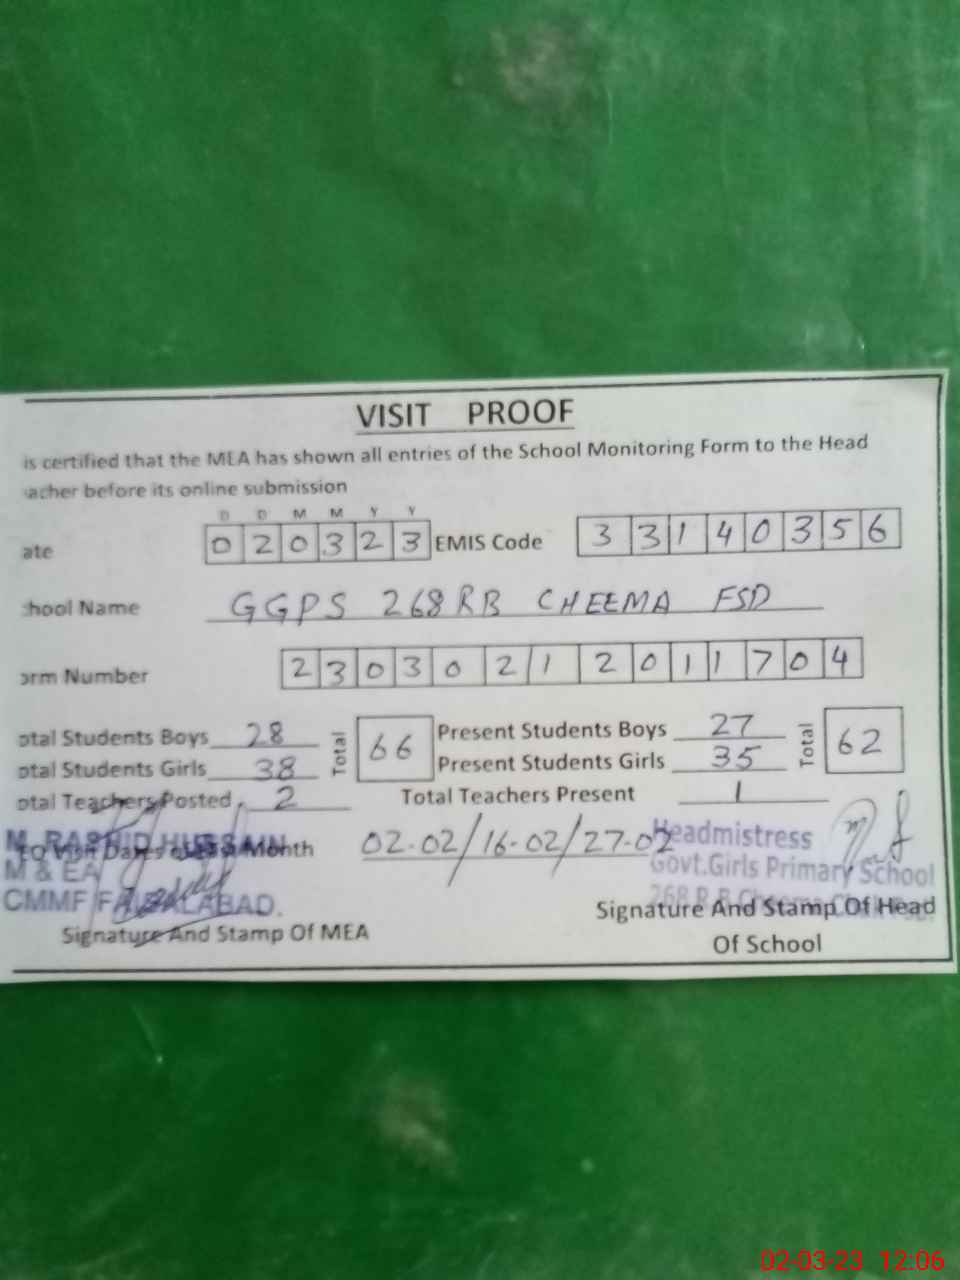 VISIT PROOF
is certified that the MEA has shown all entries of the School Monitoring Form to the Head
acher before its online submission
D D M M Y Y
ate 020323 EMIS Code 33140356
hool Name GGPS 268RB CHEEMA FSD
orm Number 23030212011704
otal Students Boys 28 Total 66 Present Students Boys 27 Total 62
otal Students Girls 38 Present Students Girls 35
otal Teachers Posted 2 Total Teachers Present 1
M. RASHID HUSSAIN
Month 02-02/16-02/27-02
Headmistress
M & EA
Govt.Girls Primary School
CMMF FAISALABAD.
268 R.B Cheema
Signature And Stamp Of MEA
Signature And Stamp Of Head
Of School
02-03-23 12:06